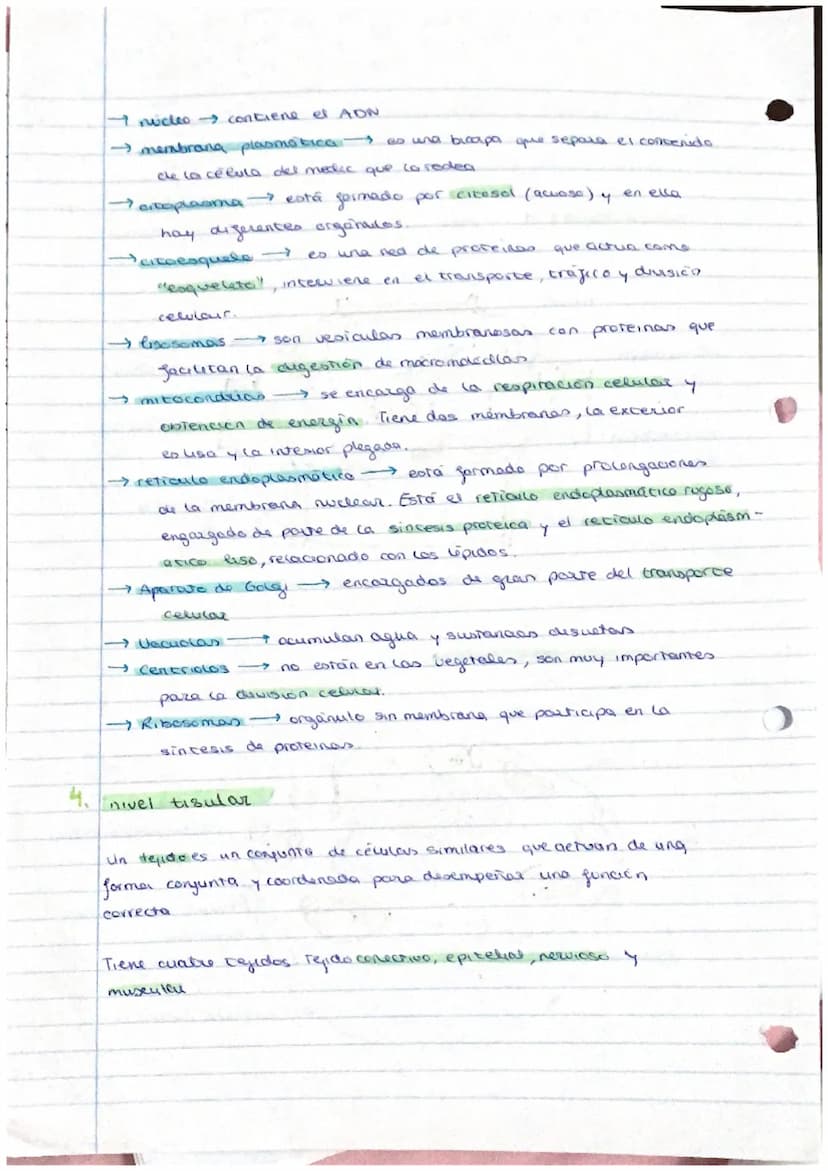 → núcleo → contiene el ADN
→ membrana plasmática → es una bicapa que separa el contenido
de la célula del medio que la rodea
→ citoplasma → está formado por citosol (acuoso) y en ella
hay diferentes orgánulos.
→ citoesqueleto → es una red de proteinas que actua como
"esqueleto", interviene en el transporte, tráfico y división
celular.
→ lisosomas → son vesiculas membranosas con proteinas que
facilitan la digestión de macromoléculas
→ mitocondrias → se encarga de la respiración celular y
obtención de energía. Tiene dos membranas, la exterior
es lisa y la interior plegada.
→ retículo endoplasmático → está formado por prolongaciones
de la membrana nuclear. Está el retículo endoplasmático rugoso,
engargado de parte de la síntesis proteica y el retículo endoplásm-
atico liso, relacionado con los lípidos.
→ Aparato de Golgi → encargados de gran parte del transporte
celular
→ Vacuolas → acumulan agua y sustancias disueltas
→ Centriolos → no están en las vegetales, son muy importantes
para la división celular.
→ Ribosomas → orgánulo sin membrana que participa en la
síntesis de proteinas.
4. nivel tisular
Un tejido es un conjunto de células similares que actuan de una
forma conjunta y coordenada para desempeñar una función
correcta
Tiene cuatro tejidos. Tejido conectivo, epitelial, nervioso y
muscular